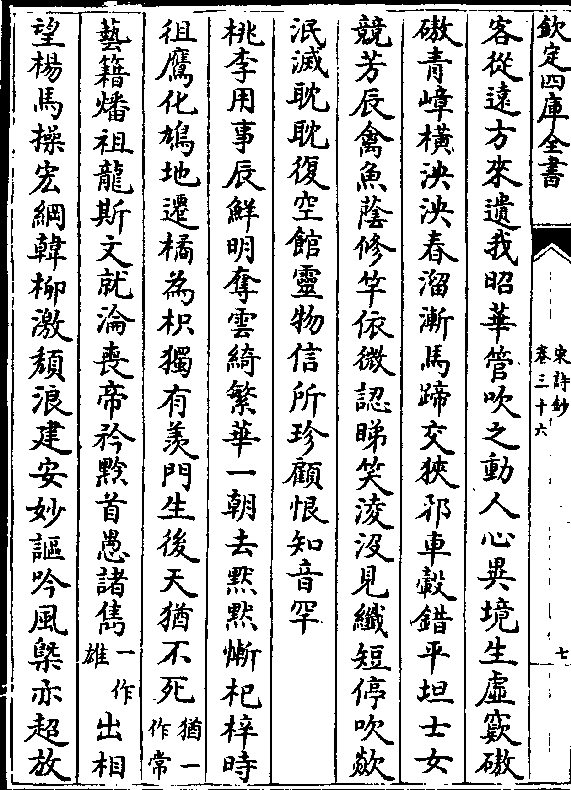 欽定四庫全書
宋詩鈔
卷三十六
七
客從遠方來遺我昭華管吹之動人心異境生虛竅磝
磝青嶂橫泱泱春溜漸馬蹄交狹邪車轂錯平坦士女
競芳辰禽魚蔭修竿依微認睇笑淩沒見纖短停吹歘
泯滅耽耽復空館靈物信所珍顧恨知音罕
桃李用事辰鮮明奪雲綺繁華一朝去默默慚杞梓時
徂鷹化鳩地遷橘為枳獨有羨門生後天猶不死猶一作常
藝籍燔祖龍斯文就淪喪帝矜黔首愚諸儁一作雄出相
望楊馬操宏綱韓柳激頹浪建安妙謳吟風槩亦超放